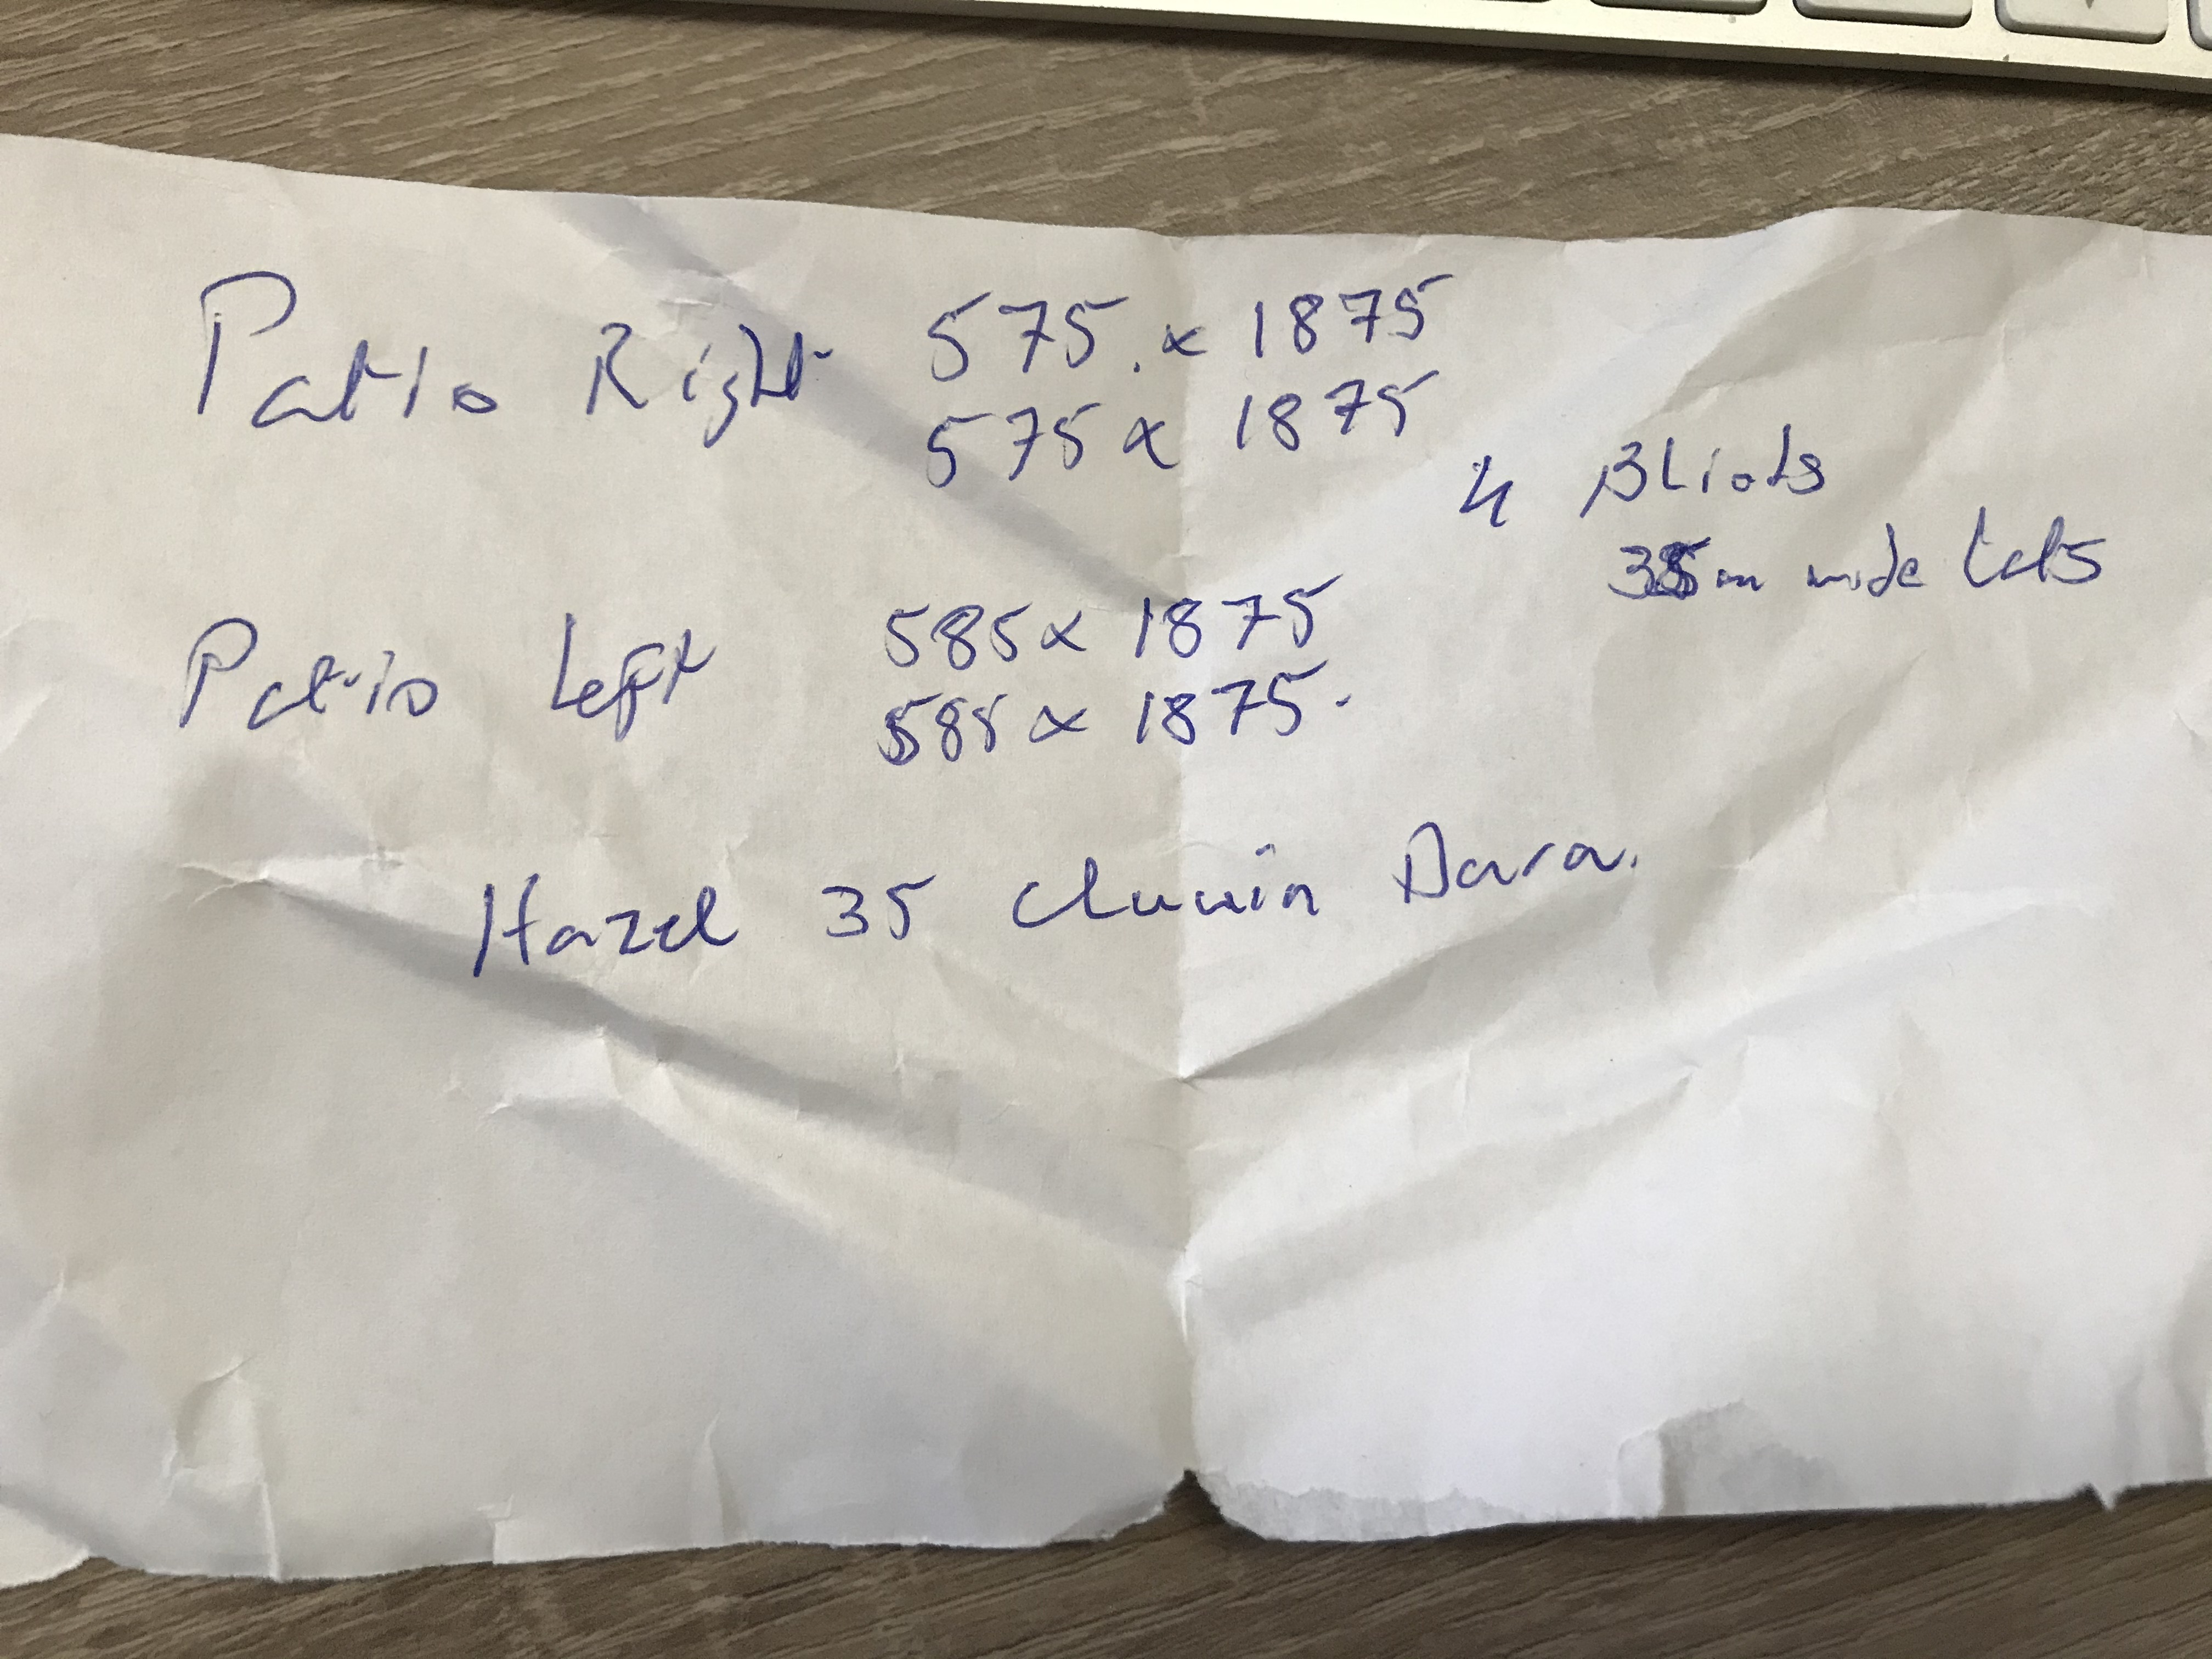 Patio Right 575 x 1875
575 x 1875
4 Blinds
35m wide Lats
Patio Left 585 x 1875
585 x 1875.
Hazel 35 Cluain Dara.